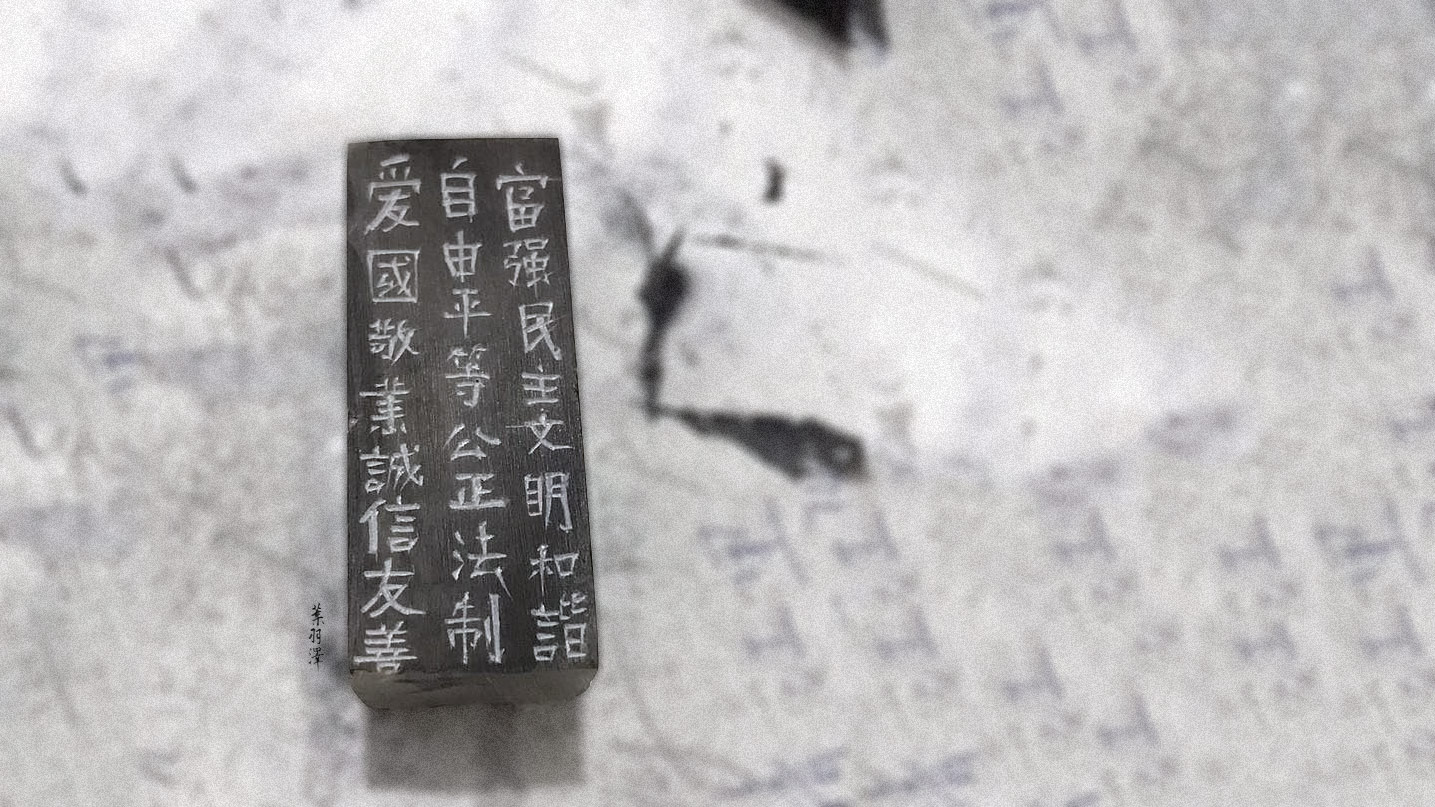 富强民主文明和諧
自由平等公正法制
爱國敬業誠信友善
葉羽澤